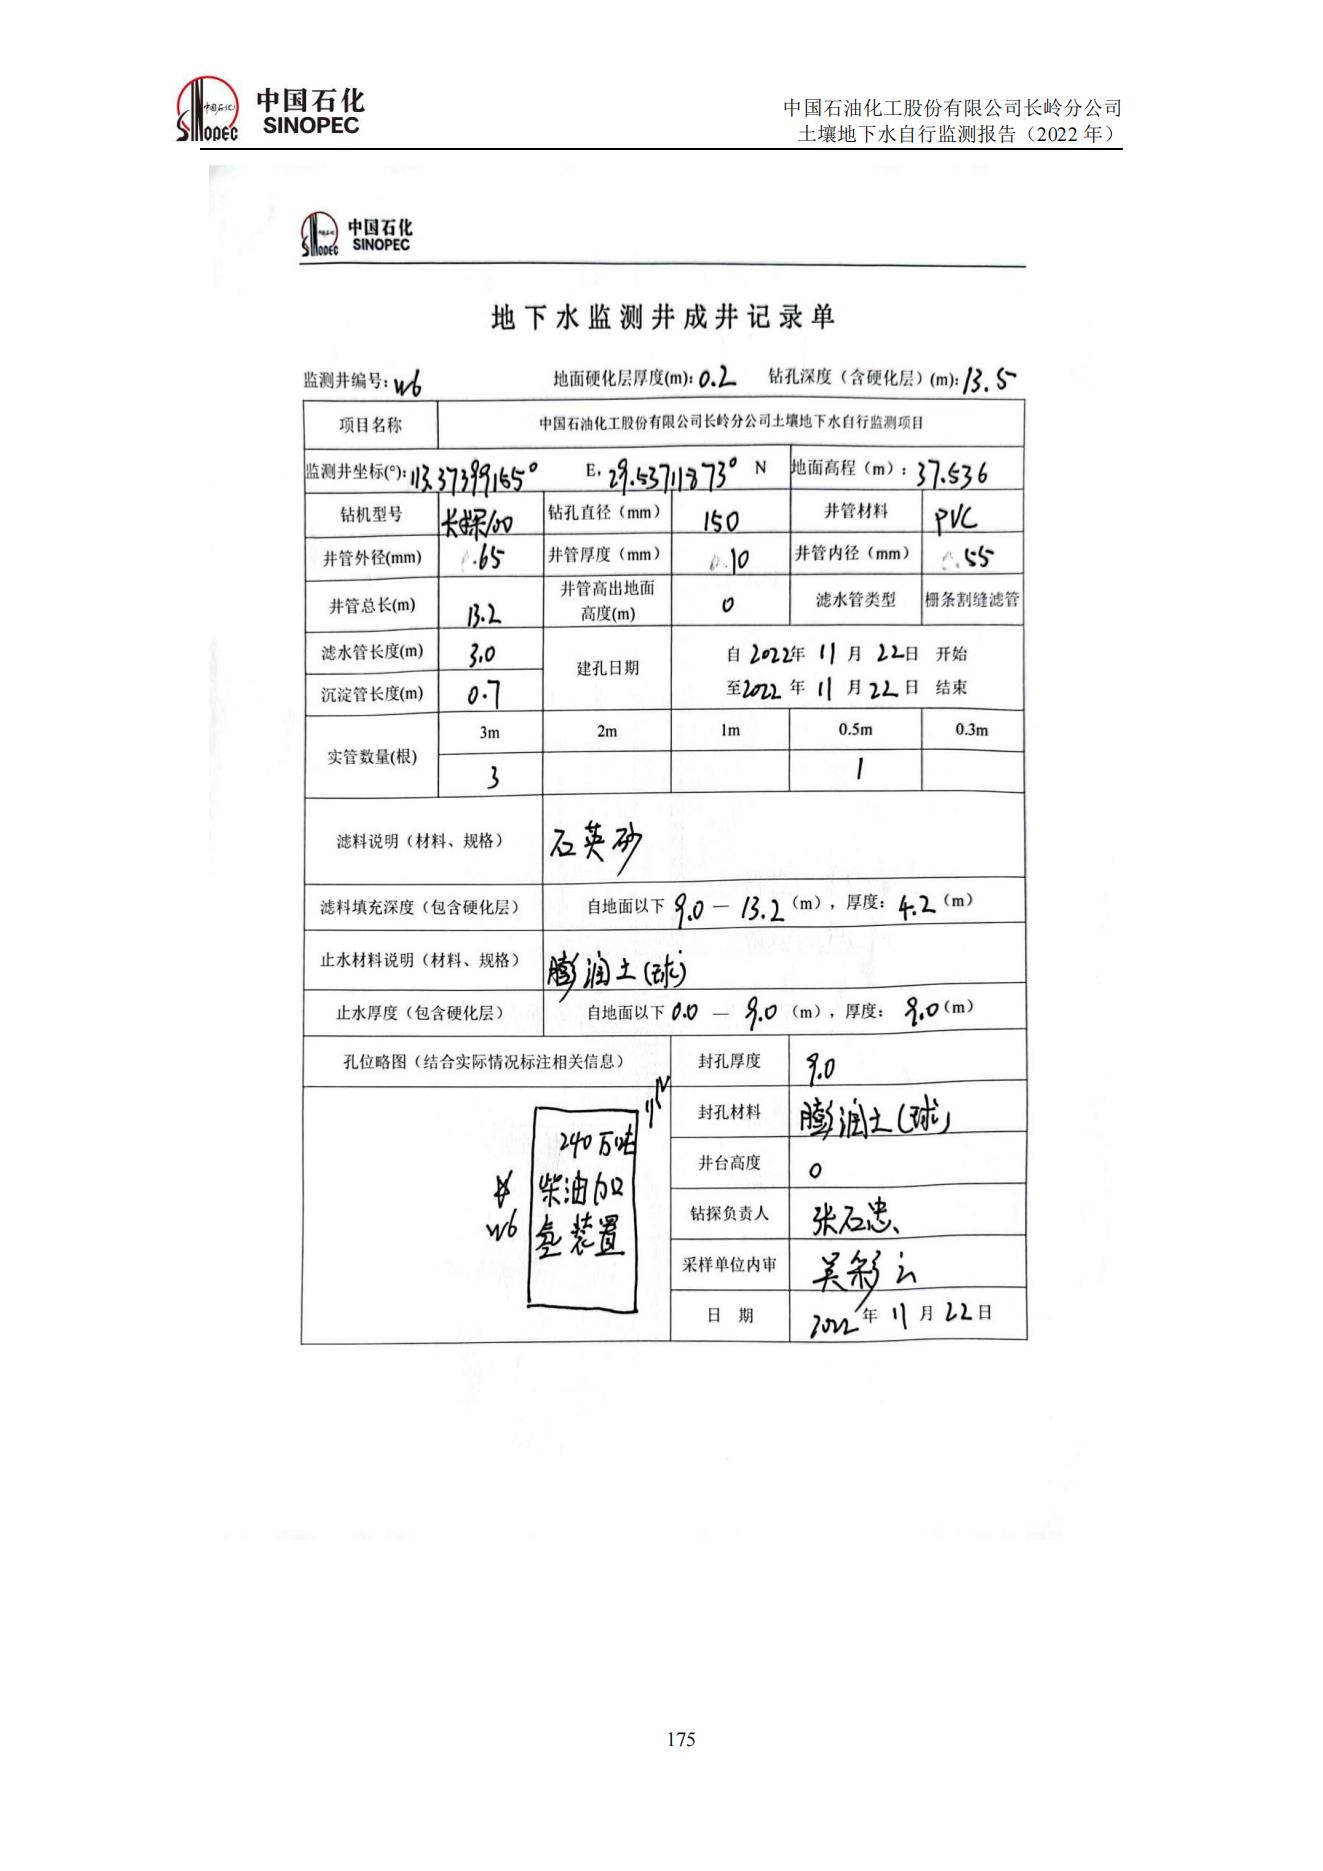 中国石化
SINOPEC
中国石油化工股份有限公司长岭分公司
土壤地下水自行监测报告（2022 年）
中国石化
SINOPEC
地下水监测井成井记录单
监测井编号: W6 地面硬化层厚度(m): 0.2 钻孔深度（含硬化层）(m): 13.5
项目名称 中国石油化工股份有限公司长岭分公司土壤地下水自行监测项目
监测井坐标(°): 113.37399165° E, 29.53711873° N 地面高程（m）: 37.536
钻机型号 长探100 钻孔直径（mm） 150 井管材料 PVC
井管外径(mm) 65 井管厚度（mm） 10 井管内径（mm） 55
井管总长(m) 13.2 井管高出地面高度(m) 0 滤水管类型 栅条割缝滤管
滤水管长度(m) 3.0 建孔日期 自 2022年 11 月 22日 开始
沉淀管长度(m) 0.7 至2022 年 11 月 22 日 结束
实管数量(根) 3m 2m 1m 0.5m 0.3m
3 1
滤料说明（材料、规格） 石英砂
滤料填充深度（包含硬化层） 自地面以下 9.0 — 13.2（m）, 厚度: 4.2（m）
止水材料说明（材料、规格） 膨润土(球)
止水厚度（包含硬化层） 自地面以下 0.0 — 9.0（m）, 厚度: 9.0（m）
孔位略图（结合实际情况标注相关信息） 封孔厚度 9.0
N
封孔材料 膨润土(球)
240万吨
柴油加
氢装置
井
W6
井台高度 0
钻探负责人 张石忠
采样单位内审 吴彩云
日 期 2022年 11 月 22 日
175